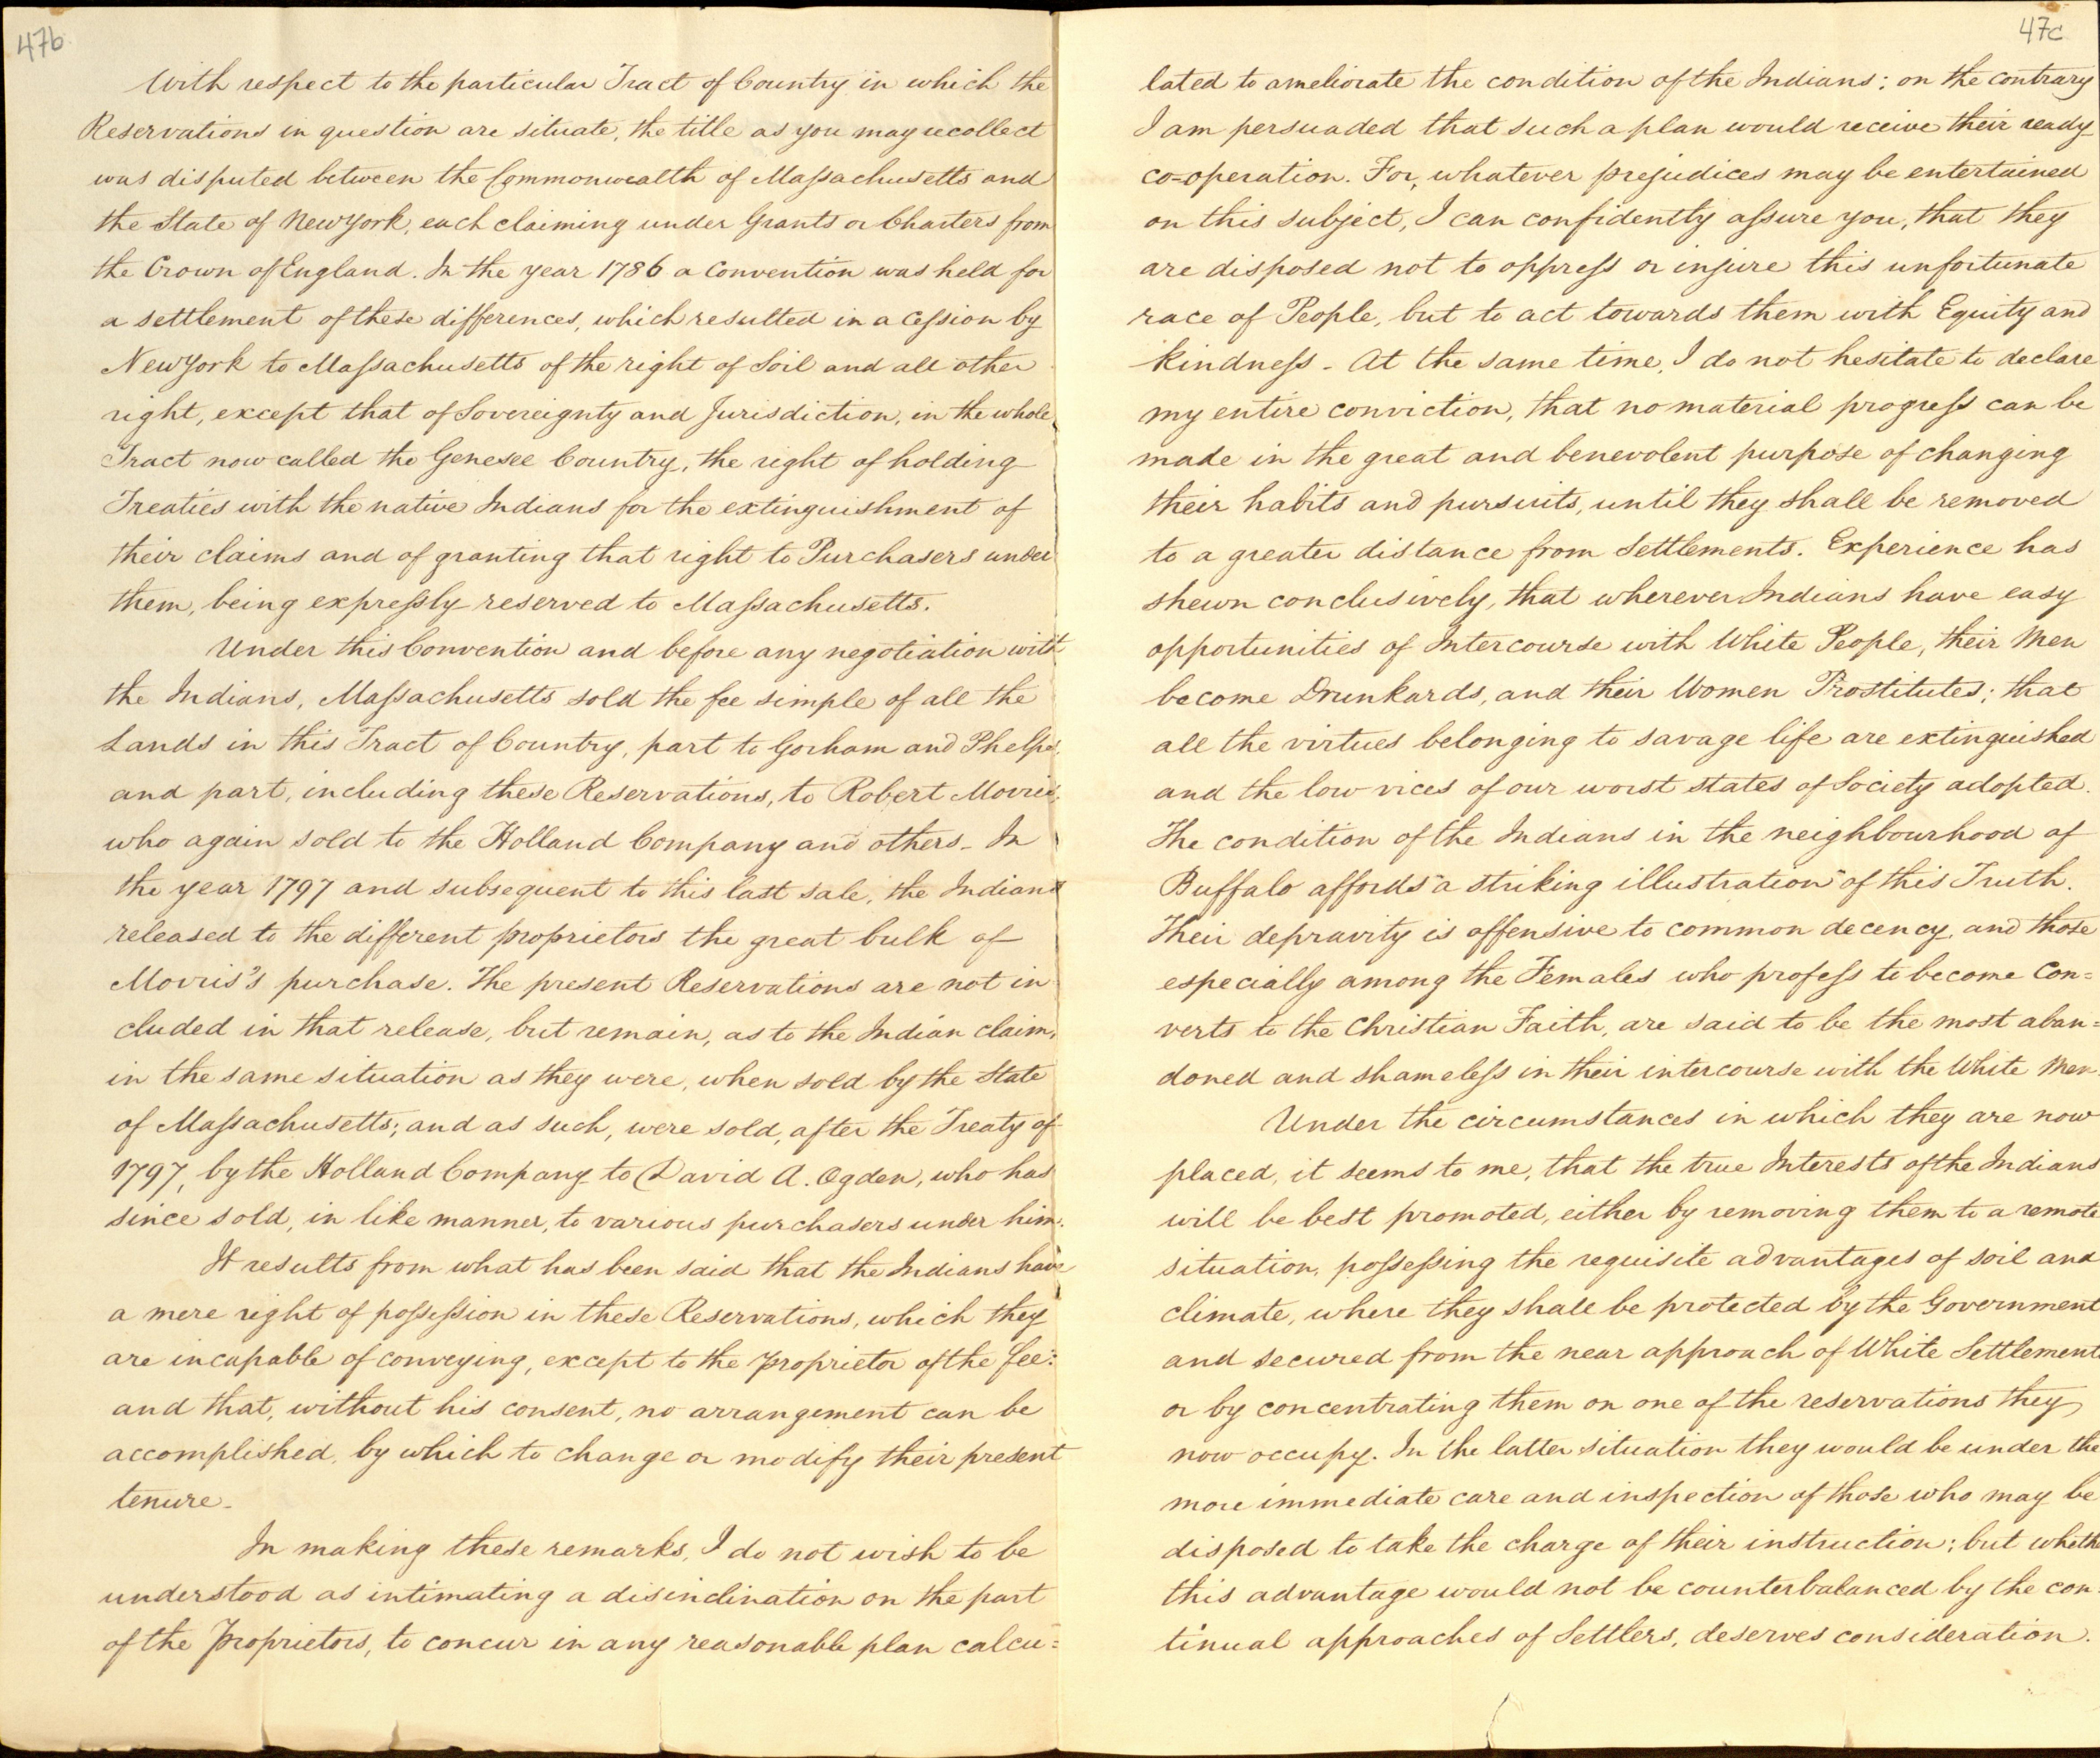 47b
With respect to the particular Tract of Country in which the
Reservations in question are situate, the title as you may recollect
was disputed between the Commonwealth of Massachusetts and
the State of New York, each claiming under Grants or Charters from
the Crown of England. In the year 1786 a Convention was held for
a settlement of these differences, which resulted in a Cession by
New York to Massachusetts of the right of Soil and all other
right, except that of Sovereignty and Jurisdiction, in the whole
Tract now called the Genesee Country, the right of holding
Treaties with the native Indians for the extinguishment of
their claims and of granting that right to Purchasers under
them, being expressly reserved to Massachusetts.
Under this Convention and before any negotiation with
the Indians, Massachusetts sold the fee simple of all the
Lands in this Tract of Country, part to Gorham and Phelps,
and part, including these Reservations, to Robert Morris,
who again sold to the Holland Company and others - In
the year 1797 and subsequent to this last sale, the Indians
released to the different proprietors the great bulk of
Morris's purchase. The present Reservations are not in
cluded in that release, but remain, as to the Indian claim,
in the same situation as they were, when sold by the State
of Massachusetts; and as such, were sold, after the Treaty of
1797, by the Holland Company to David A. Ogden, who has
since sold, in like manner, to various purchasers under him.
It results from what has been said that the Indians have
a mere right of possession in these Reservations, which they
are incapable of conveying, except to the proprietor of the fee:
and that, without his consent, no arrangement can be
accomplished, by which to change or modify their present
tenure -
In making these remarks, I do not wish to be
understood as intimating a disinclination on the part
of the Proprietors, to concur in any reasonable plan calcu=
47c
lated to ameliorate the condition of the Indians; on the contrary
I am persuaded that such a plan would receive their ready
co=operation. For, whatever prejudices may be entertained
on this subject, I can confidently assure you, that they
are disposed not to oppress or injure this unfortunate
race of People, but to act towards them with Equity and
kindness - At the same time, I do not hesitate to declare
my entire conviction, that no material progress can be
made in the great and benevolent purpose of changing
their habits and pursuits, until they shall be removed
to a greater distance from Settlements. Experience has
shewn conclusively, that wherever Indians have easy
opportunities of Intercourse with White People, their Men
become Drunkards, and their Women Prostitutes; that
all the virtues belonging to savage life are extinguished
and the low vices of our worst states of Society adopted.
The condition of the Indians in the neighbourhood of
Buffalo affords a striking illustration of this Truth.
Their depravity is offensive to common decency and those
especially among the Females who profess to become Con=
verts to the Christian Faith, are said to be the most aban=
doned and shameless in their intercourse with the White Men.
Under the circumstances in which they are now
placed, it seems to me, that the true Interests of the Indians
will be best promoted, either by removing them to a remote
situation, possessing the requisite advantages of soil and
climate, where they shall be protected by the Government
and secured from the near approach of White Settlement
or by concentrating them on one of the reservations they
now occupy. In the latter situation they would be under the
more immediate care and inspection of those who may be
disposed to take the charge of their instruction; but wheth
this advantage would not be counterbalanced by the con
tinual approaches of Settlers, deserves consideration.